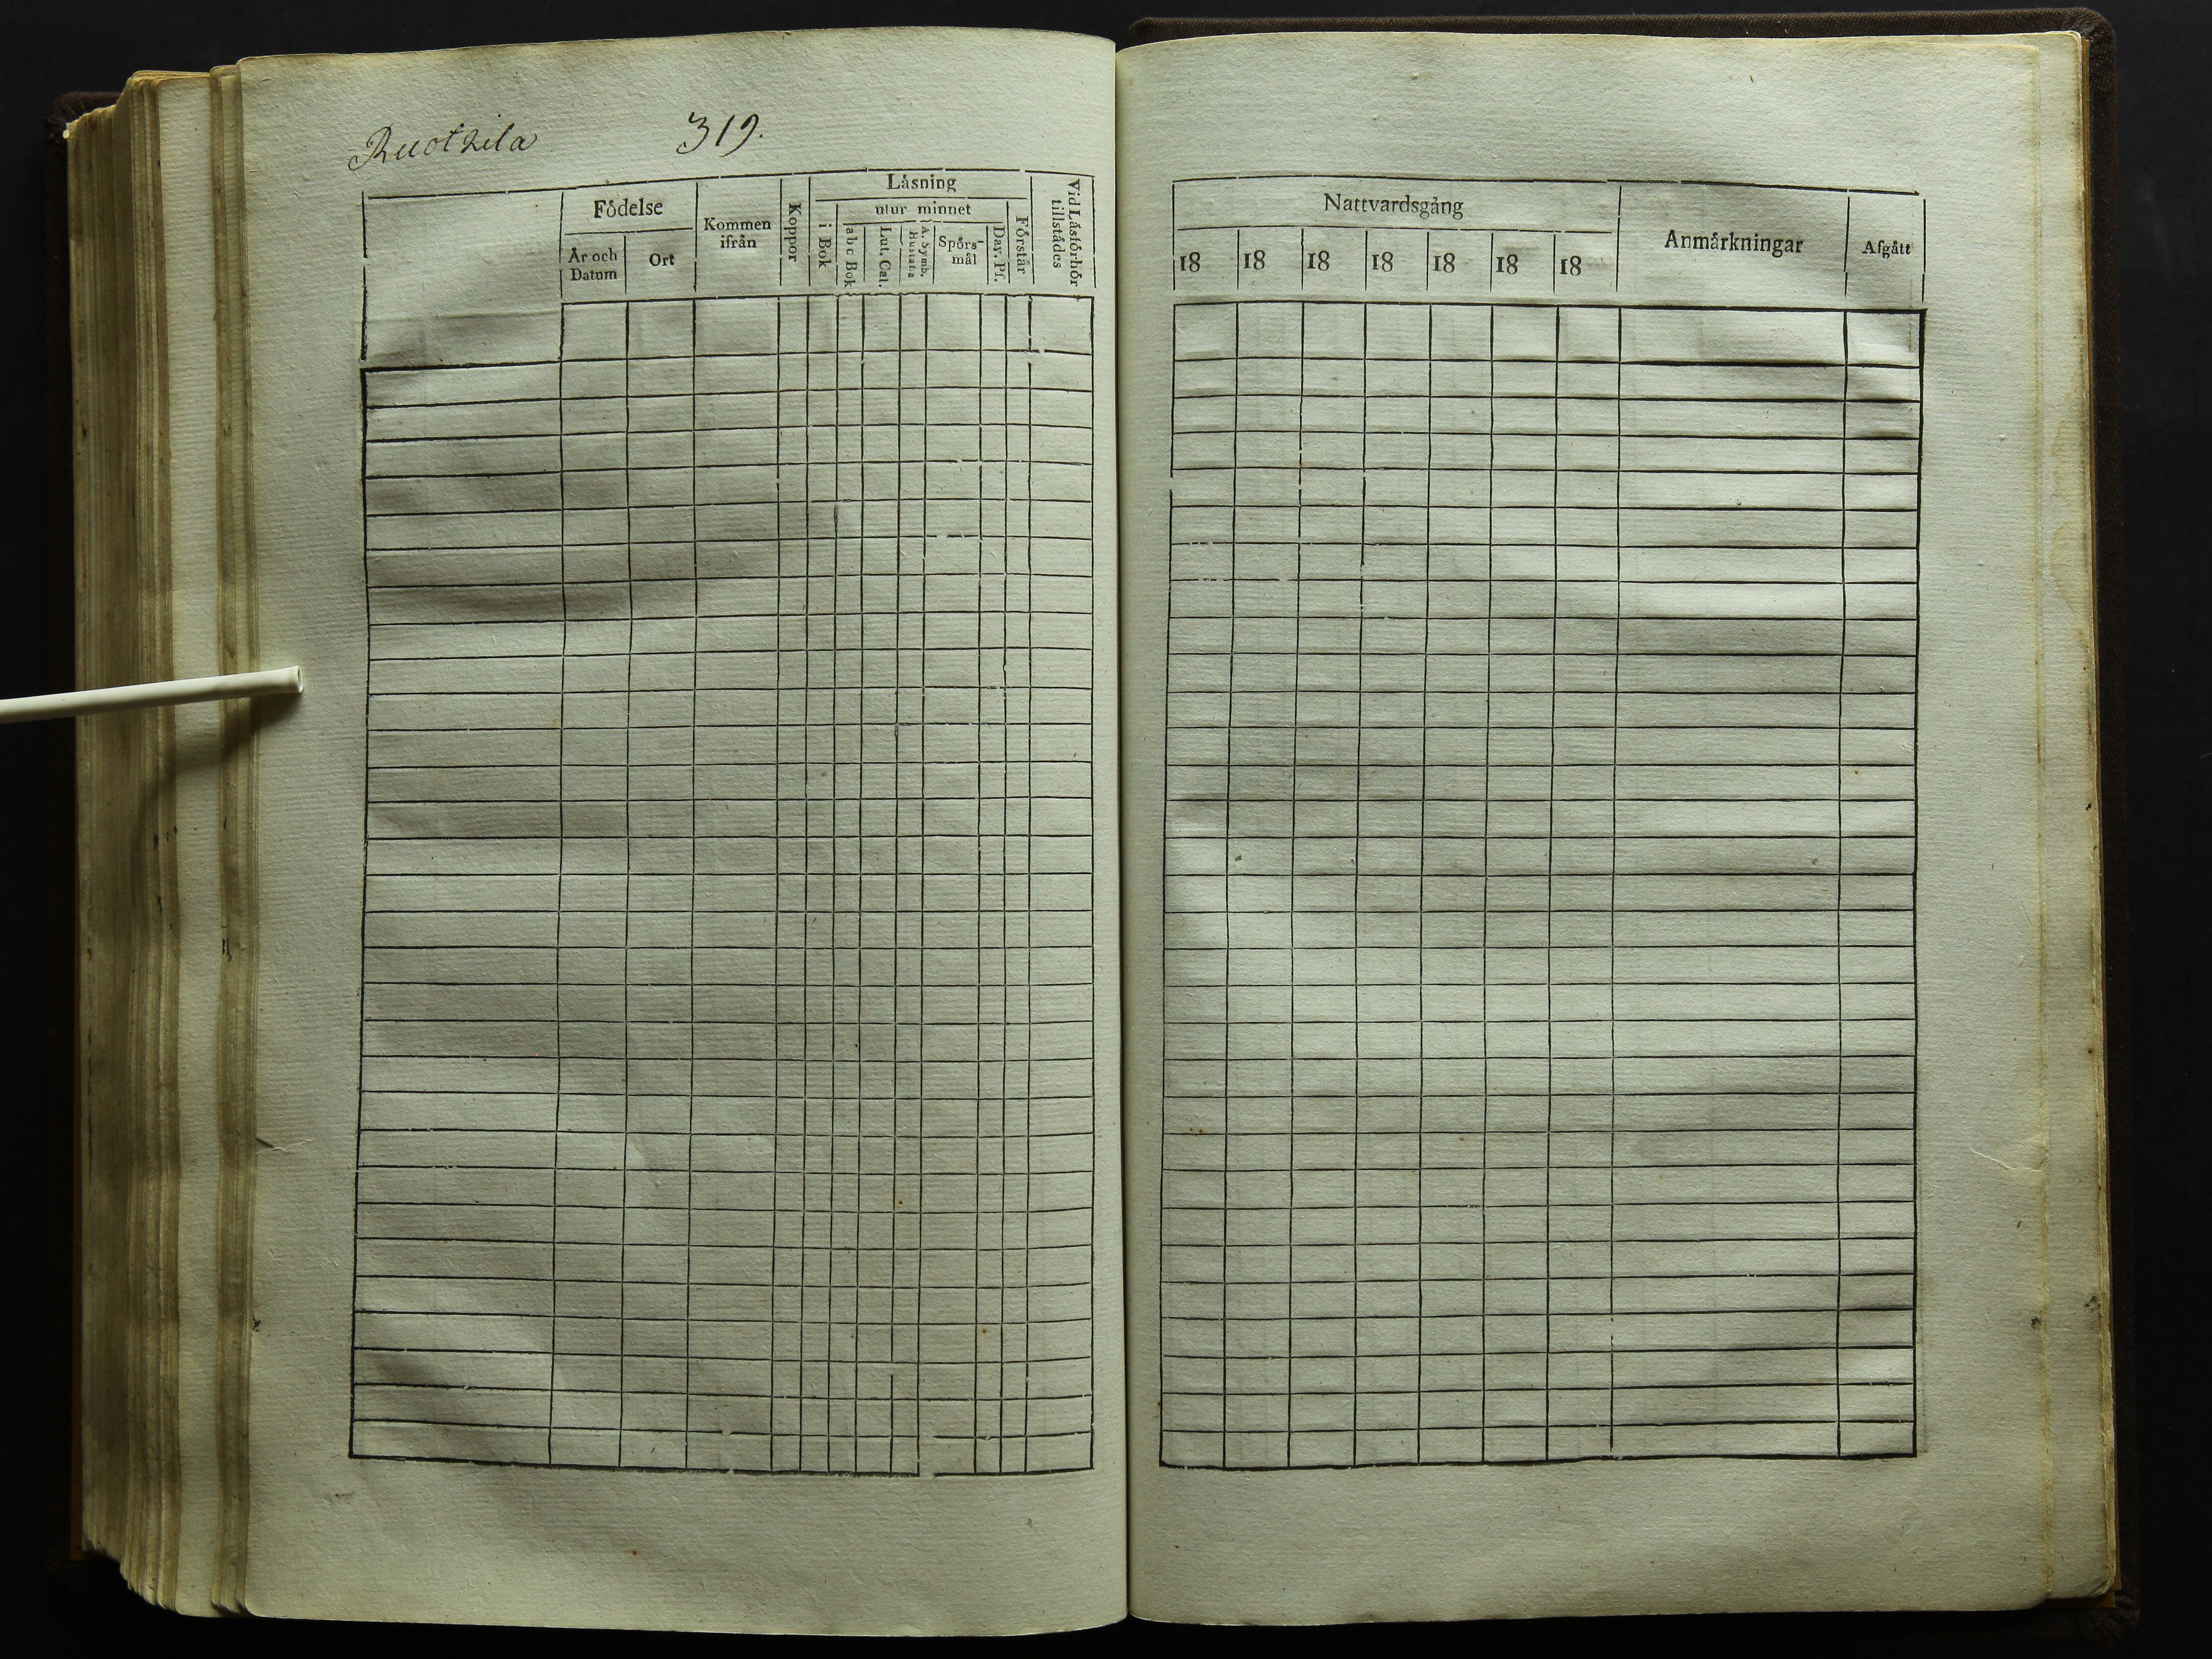 Ruotzila 319.
Födelse
År och Datum
Ort
Kommen ifrån
Koppor
Läsning
i Bok
utur minnet
abc Bok
Lut. Cat.
A. Symb. Hustafla
Spörs-
mål
Dav. Ps.
Förstår
Vid Läsförhör tillstädes
Nattvardsgång
18 18 18 18 18 18 18
Anmärkningar
Afgått